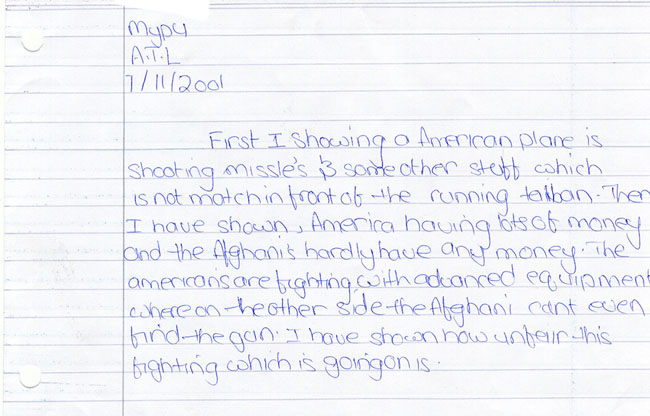 Mypy
A.T.L
7/11/2001
First I showing a American plane is
shooting missle's & some other stuff which
is not match in front of the running taliban. Then
I have shown, America having lots of money
and the Afghani's hardly have any money. The
americans are fighting with advanced equipment
where on the other side the Afghani cant even
find the gun. I have shown how unfair this
fighting which is going on is.